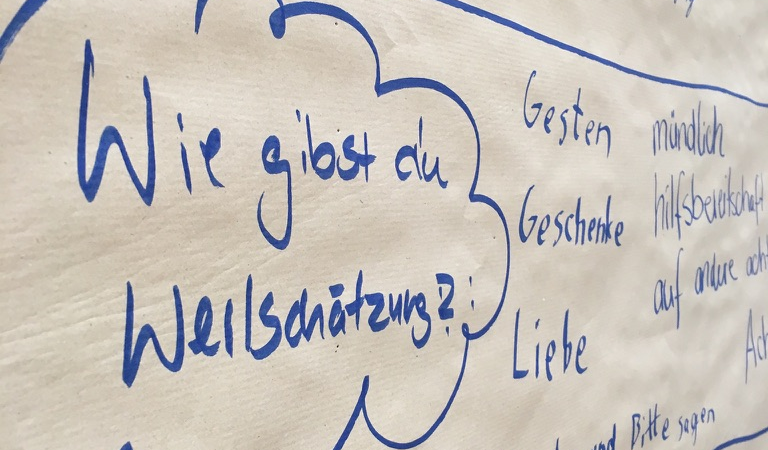 Wie gibst du
Wertschätzung?:
Gesten
Geschenke
Liebe
mündlich
hilfsbereitschaft
auf andere
und Bitte sagen